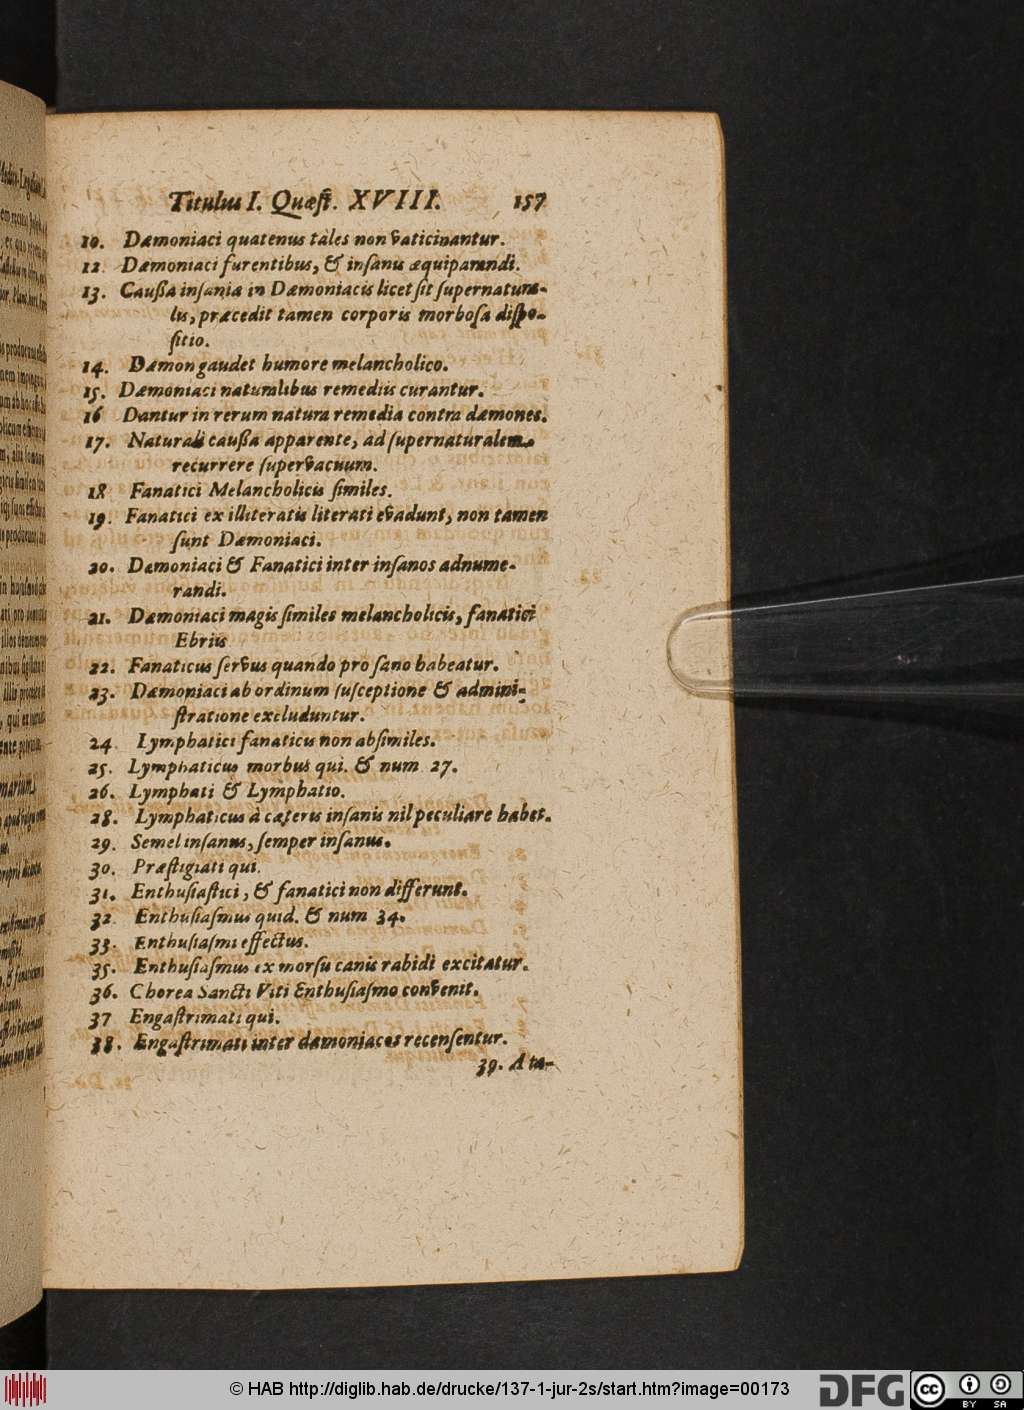 Titulus I. Quæſt. XVIII. 157
10. Dæmoniaci quatenus tales non vaticinantur.
12. Dæmoniaci furentibus, & inſanis æquiparandi.
13. Cauſſa inſaniæ in Dæmoniacis licet ſit ſupernatura-
lis, præcedit tamen corporis morboſa diſpo-
ſitio.
14. Dæmon gaudet humore melancholico.
15. Dæmoniaci naturalibus remediis curantur.
16 Dantur in rerum natura remedia contra dæmones.
17. Naturali cauſſa apparente, ad ſupernaturalem
recurrere ſupervacuum.
18 Fanatici Melancholicis ſimiles.
19. Fanatici ex illiteratis literati evadunt, non tamen
ſunt Dæmoniaci.
20. Dæmoniaci & Fanatici inter inſanos adnume-
randi.
21. Dæmoniaci magis ſimiles melancholicis, fanatici
Ebriis
22. Fanaticus ſervus quando pro ſano habeatur.
23. Dæmoniaci ab ordinum ſuſceptione & admini-
ſtratione excluduntur.
24 Lymphatici fanaticis non abſimiles.
25. Lymphaticus morbus qui. & num 27.
26. Lymphati & Lymphatio.
28. Lymphaticus à cæteris inſanis nil peculiare habet.
29. Semel inſanus, ſemper inſanus.
30. Præſtigiati qui.
31. Enthuſiaſtici, & fanatici non differunt.
32 Enthuſiaſmus quid. & num 34.
33. Enthuſiaſmi effectus.
35. Enthuſiaſmus ex morſu canis rabidi excitatur.
36. Chorea Sancti Viti Enthuſiaſmo convenit.
37 Engaſtrimati qui.
38. Engaſtrimati inter dæmoniacos recenſentur.
39. A ta-
© HAB http://diglib.hab.de/drucke/137-1-jur-2s/start.htm?image=00173
DFG
cc BY SA